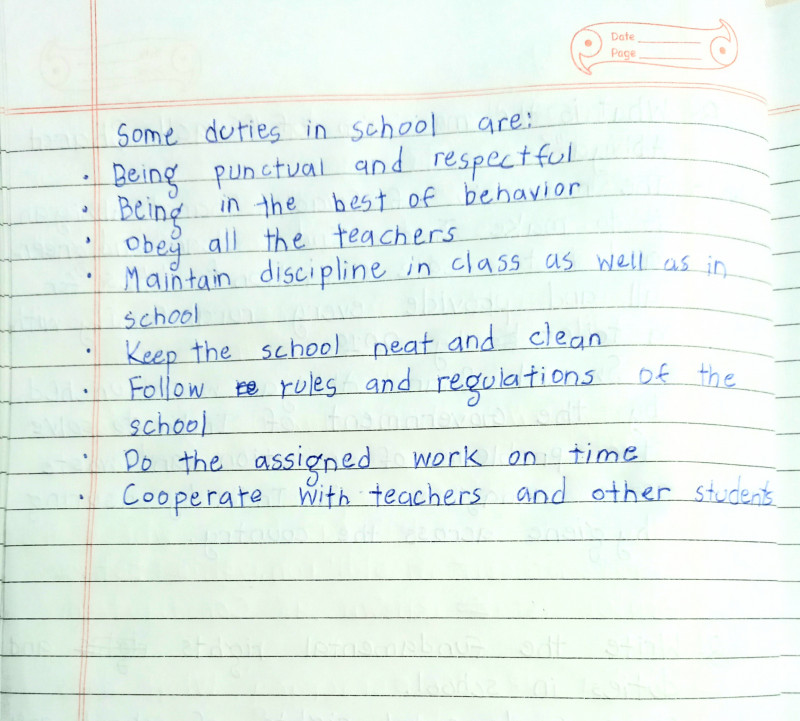 Date
Page
Some duties in school are:
• Being punctual and respectful
• Being in the best of behavior
• Obey all the teachers
• Maintain discipline in class as well as in
school
• Keep the school neat and clean
• Follow re rules and regulations of the
school
• Do the assigned work on time
• Cooperate with teachers and other students